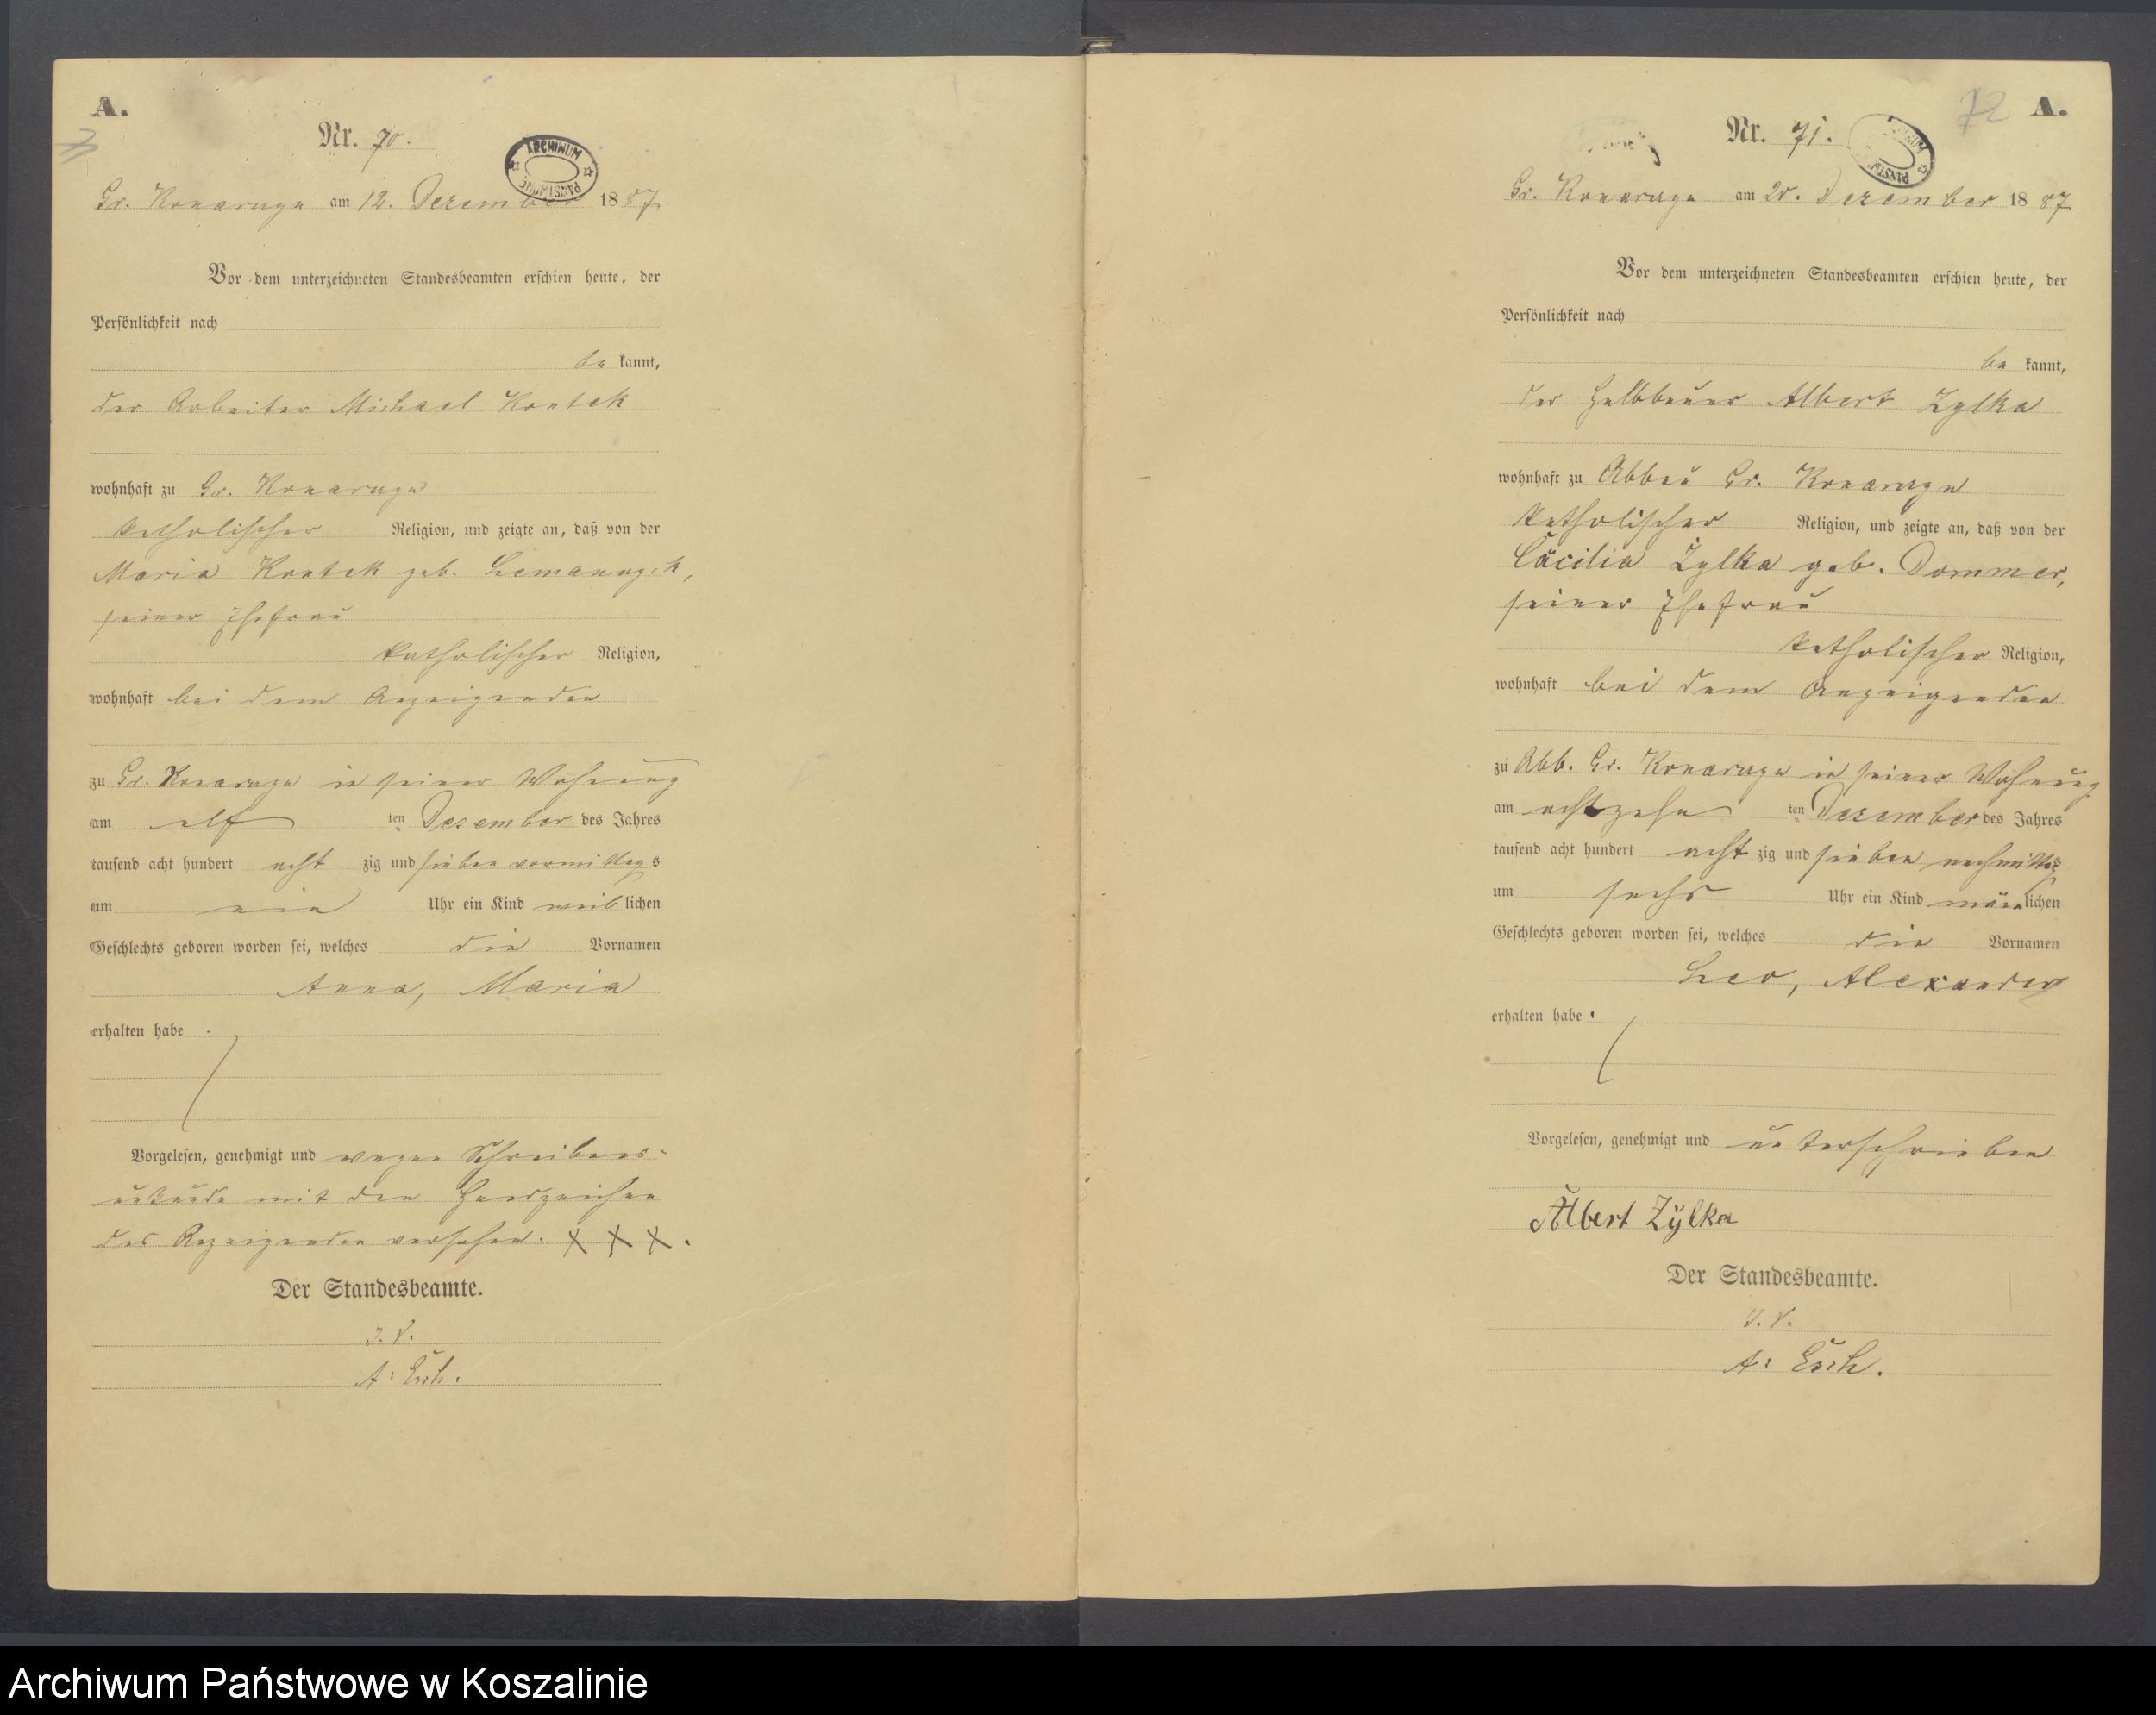 A.
Nr. 70.
ARCHIWUM PAŃSTWOWE
Gr. Konarczyn am 12. Dezember 1887
Vor dem unterzeichneten Standesbeamten erschien heute, der
Persönlichkeit nach
be kannt,
der Arbeiter Michael Kontek
wohnhaft zu Gr. Konarczyn
katholischer Religion, und zeigte an, daß von der
Maria Kontek geb.
seiner Ehefrau
katholischer Religion,
wohnhaft bei dem Anzeigenden
zu Gr. Konarczyn in seiner Wohnung
am elf ten Dezember des Jahres
tausend acht hundert acht zig und sieben vormittags
um ein Uhr ein Kind weiblichen
Geschlechts geboren worden sei, welches die Vornamen
Anna, Maria
erhalten habe.
Vorgelesen, genehmigt und wegen Schreibens-
unkunde mit den Handzeichen
des Anzeigenden versehen. X X X.
Der Standesbeamte.
J. V.
72 A.
Nr. 71.
Gr. Konarczyn am 20. Dezember 1887
Vor dem unterzeichneten Standesbeamten erschien heute, der
Persönlichkeit nach
be kannt,
der Halbbauer Albert Zylka
wohnhaft zu Abbau Gr. Konarczyn
katholischer Religion, und zeigte an, daß von der
Cäcilia Zylka geb. Dommer,
seiner Ehefrau
katholischer Religion,
wohnhaft bei dem Anzeigenden
zu Abb. Gr. Konarczyn in seiner Wohnung
am achtzehn ten Dezember des Jahres
tausend acht hundert acht zig und sieben nachmittags
um sechs Uhr ein Kind männlichen
Geschlechts geboren worden sei, welches die Vornamen
Leo, Alexander
erhalten habe.
Vorgelesen, genehmigt und unterschrieben
Albert Zylka
Der Standesbeamte.
J. V.
Archiwum Państwowe w Koszalinie